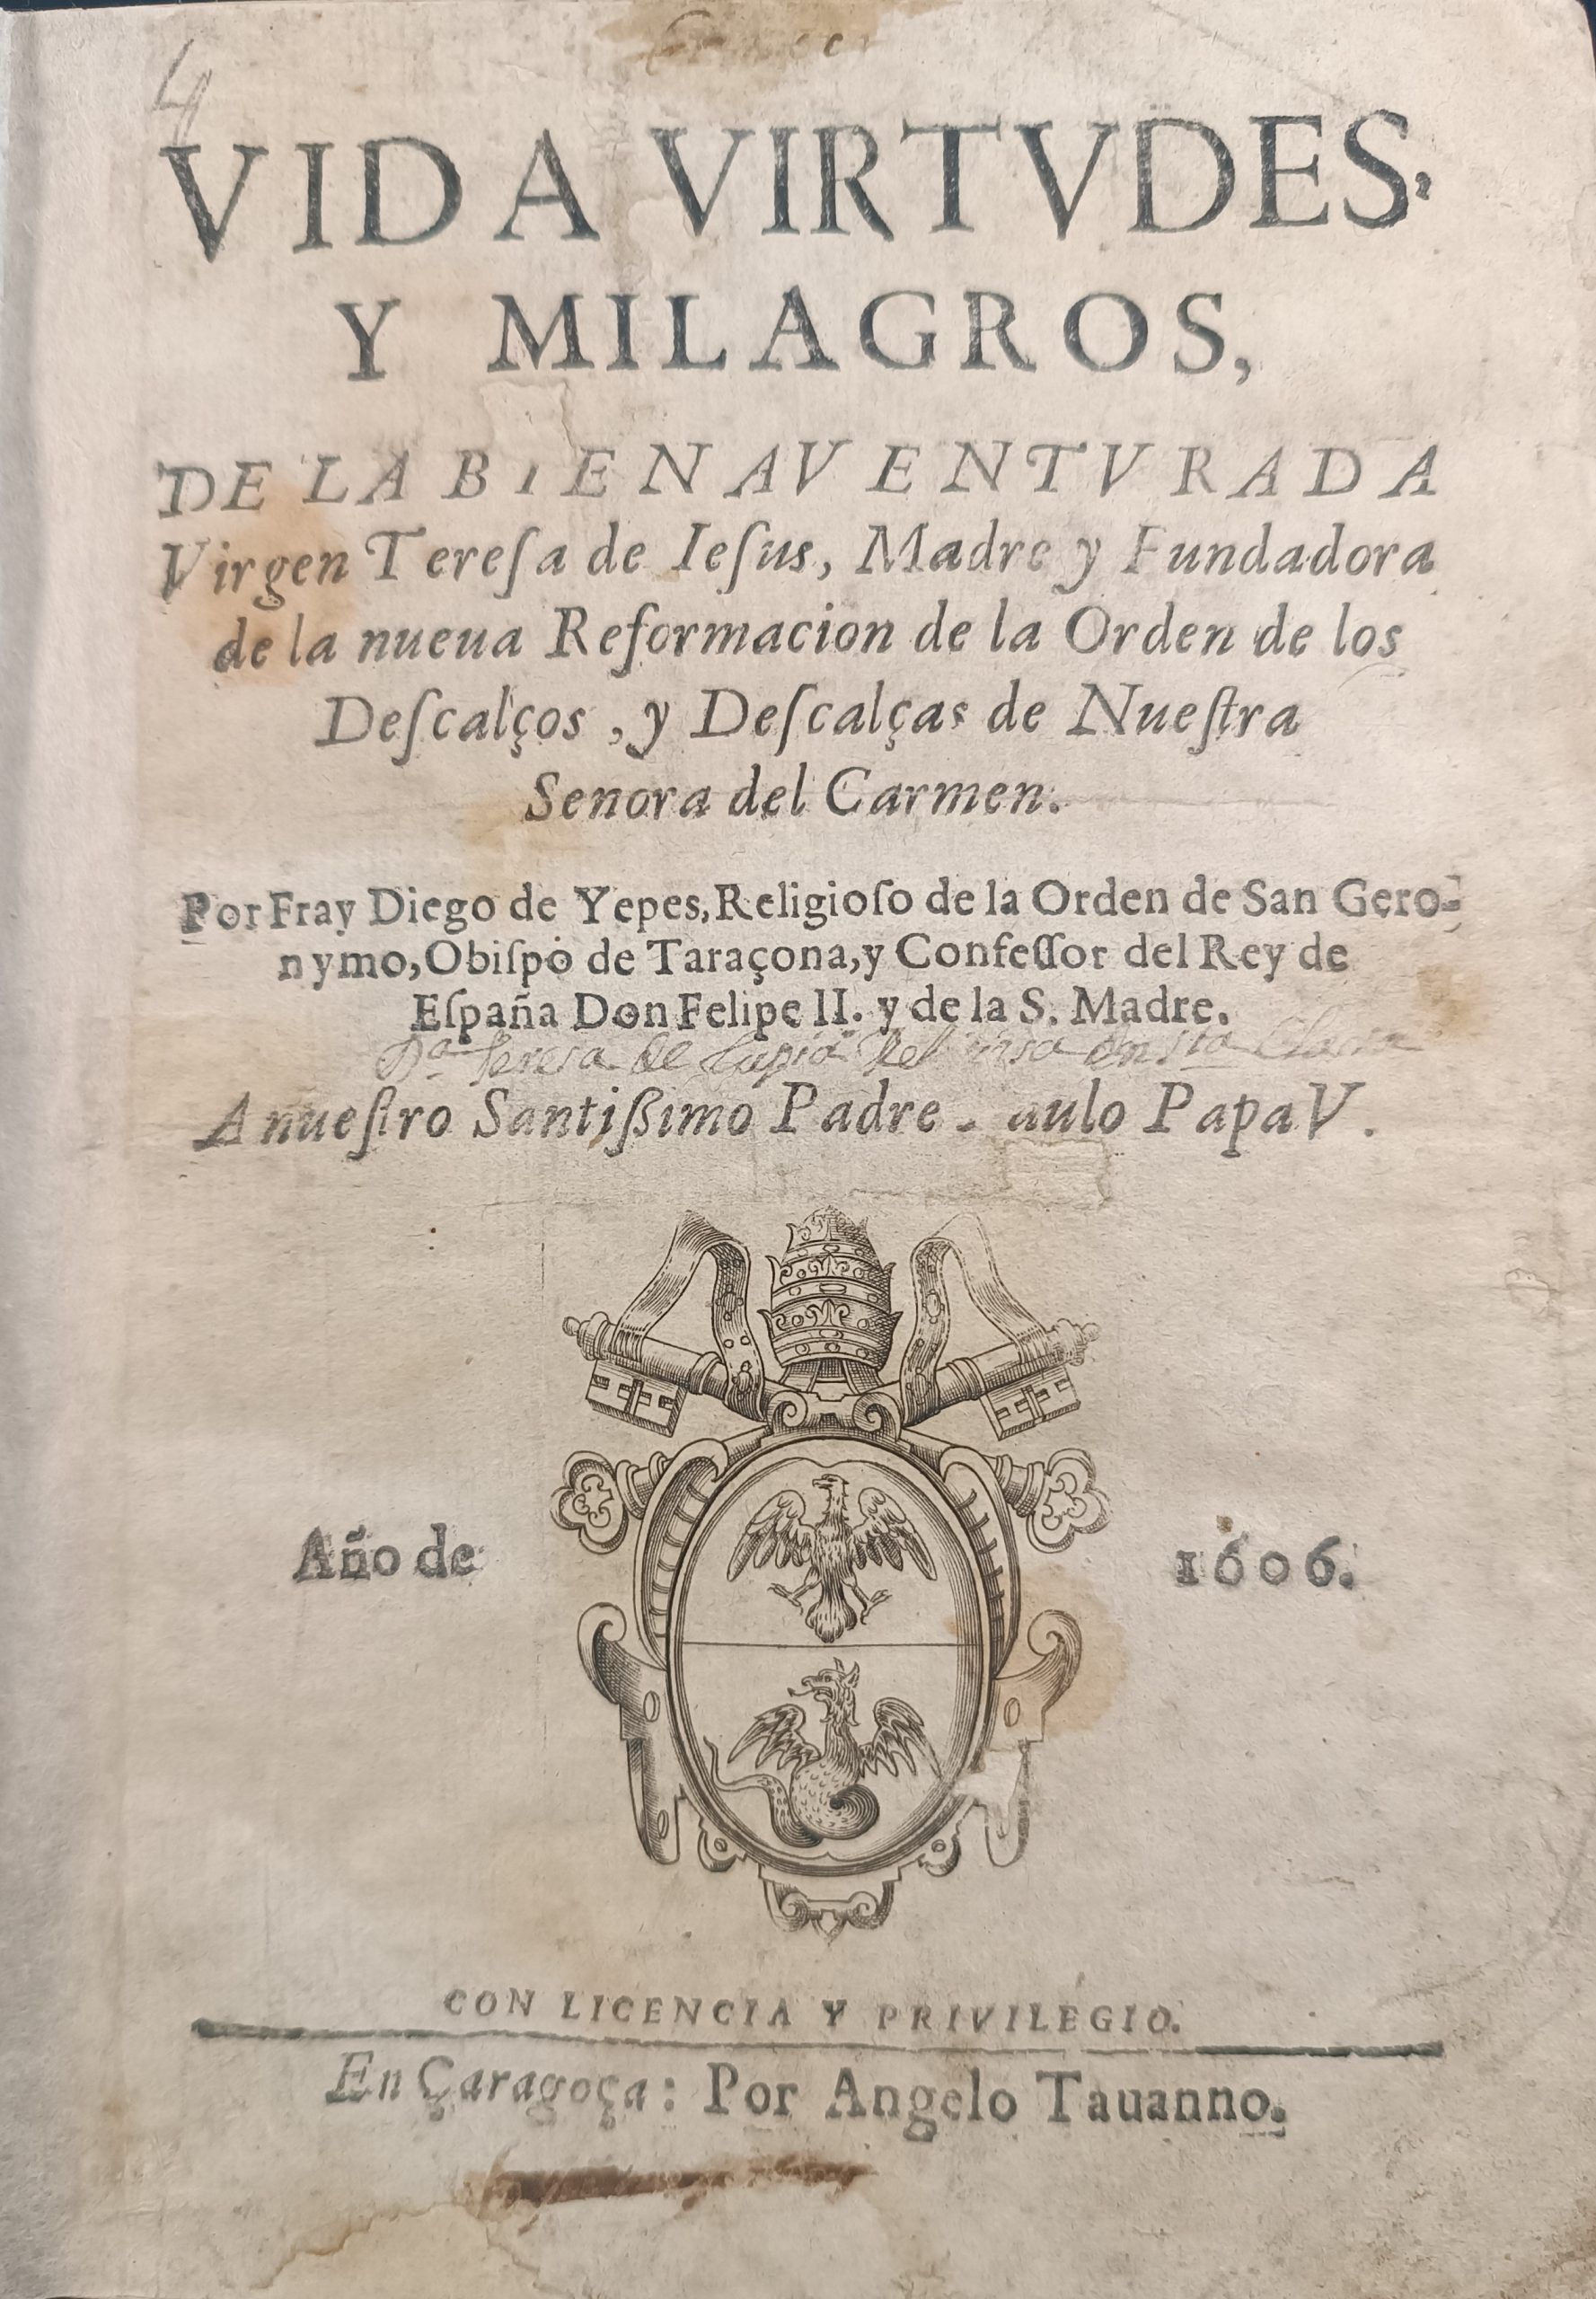 4
VIDA VIRTVDES,
Y MILAGROS,
DE LA BIENAVENTVRADA
Virgen Tereſa de Ieſus, Madre y Fundadora
de la nueua Reformacion de la Orden de los
Deſcalços, y Deſcalças de Nueſtra
Senora del Carmen.
Por Fray Diego de Yepes, Religioſo de la Orden de San Gero-
nymo, Obiſpo de Taraçona, y Confeſſor del Rey de
Eſpaña Don Felipe II. y de la S. Madre.
Dª Teresa de
A nueſtro Santißimo Padre aulo Papa V.
Año de 1606.
CON LICENCIA Y PRIVILEGIO.
En Çaragoça: Por Angelo Tauanno.